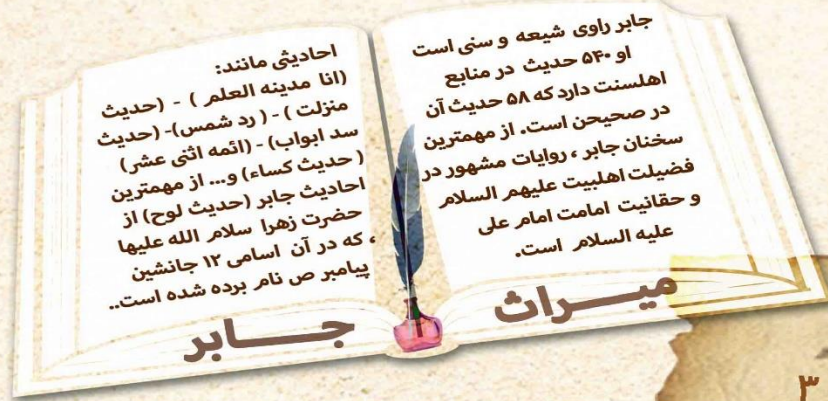 جابر راوی شیعه و سنی است
او ۵۴۰ حدیث در منابع
اهلسنت دارد که ۵۸ حدیث آن
در صحیحن است. از مهمترین
سخنان جابر ، روایات مشهور در
فضیلت اهلبیت علیهم السلام
و حقانیت امامت امام علی
علیه السلام است.
احادیثی مانند:
(انا مدینه العلم ) - (حدیث
منزلت ) - ( رد شمس)- (حدیث
سد ابواب) - (ائمه اثنی عشر)
( حدیث کساء) و... از مهمترین
احادیث جابر (حدیث لوح) از
حضرت زهرا سلام الله علیها
، که در آن اسامی ۱۲ جانشین
پیامبر ص نام برده شده است..
میراث
جابر
۳